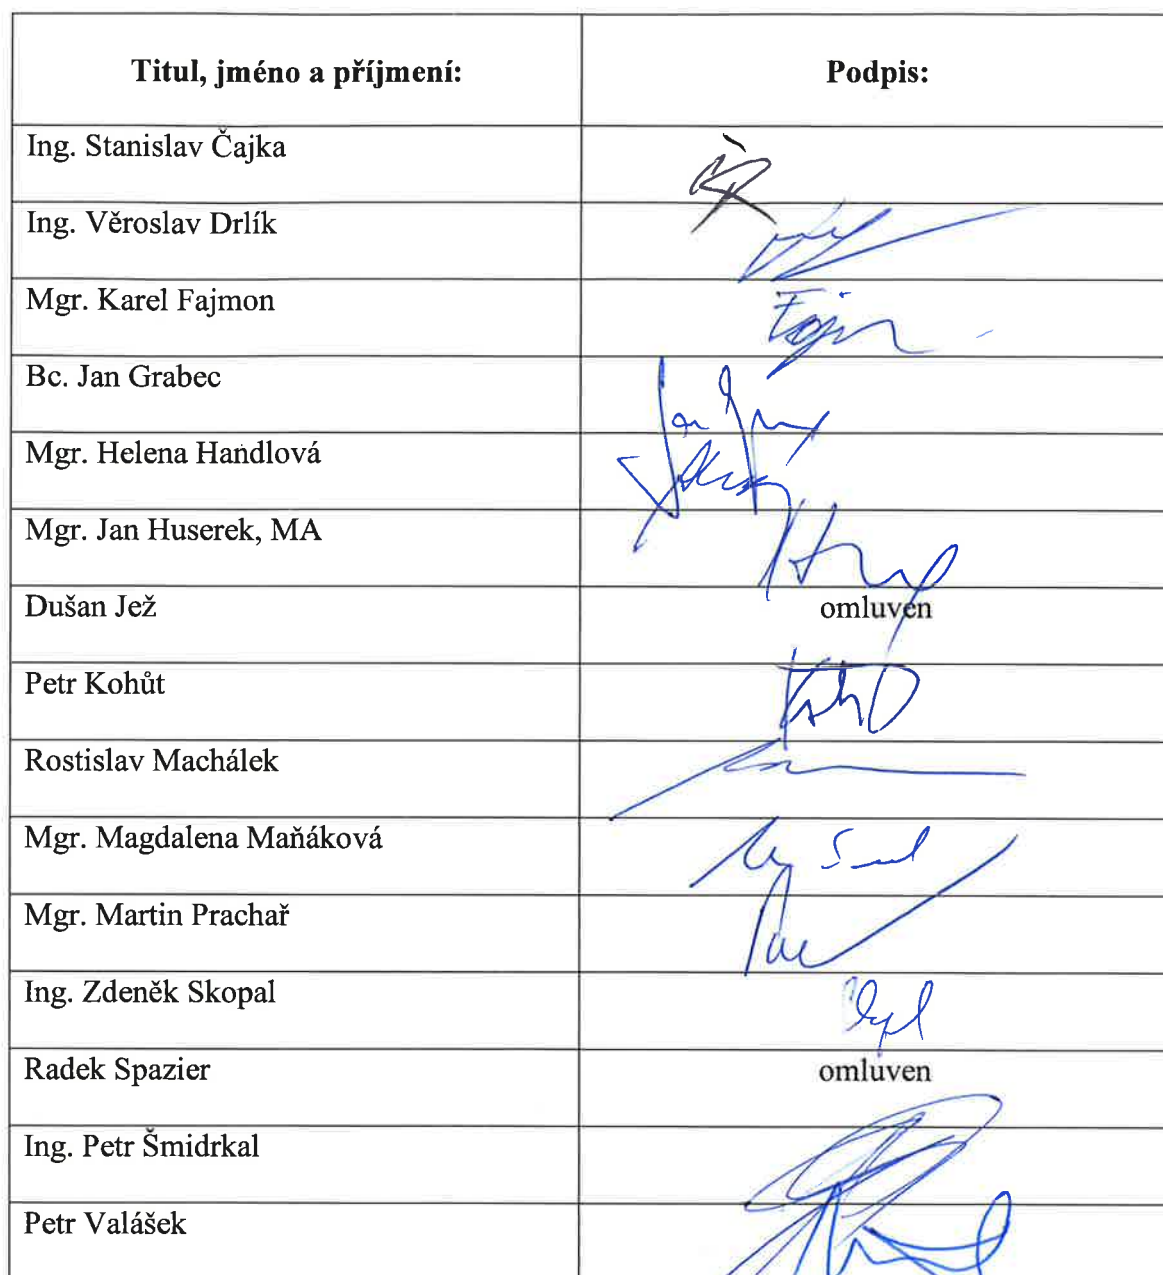 Titul, jméno a příjmení: Podpis:
Ing. Stanislav Čajka
Ing. Věroslav Drlík
Mgr. Karel Fajmon
Bc. Jan Grabec
Mgr. Helena Handlová
Mgr. Jan Huserek, MA
Dušan Jež omluven
Petr Kohůt
Rostislav Machálek
Mgr. Magdalena Maňáková
Mgr. Martin Prachař
Ing. Zdeněk Skopal
Radek Spazier omluven
Ing. Petr Šmidrkal
Petr Valášek